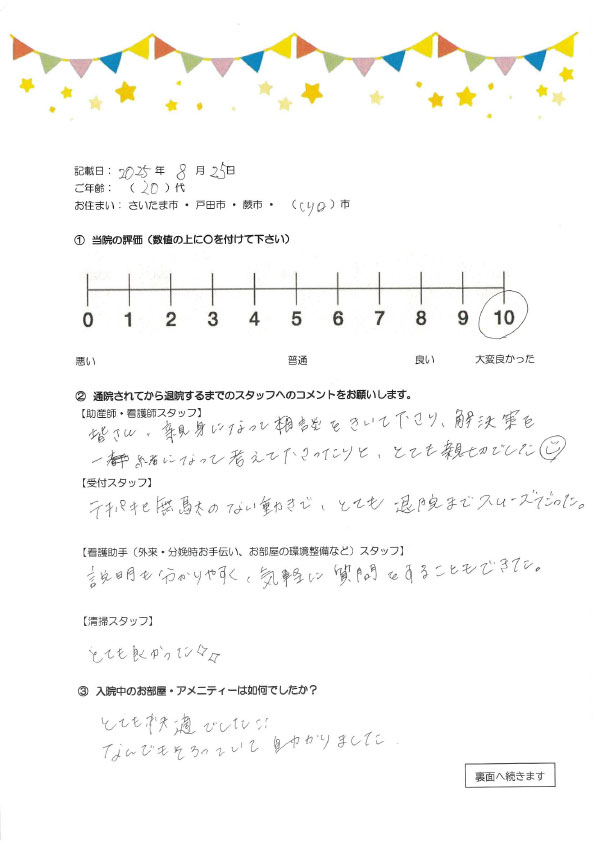 記載日： 2025 年 8 月 25日
ご年齢： （ 20 ）代
お住まい： さいたま市 ・ 戸田市 ・ 蕨市 ・ （ ）市
① 当院の評価（数値の上に〇を付けて下さい）
0 1 2 3 4 5 6 7 8 9 10
悪い 普通 良い 大変良かった
② 通院されてから退院するまでのスタッフへのコメントをお願いします。
【助産師・看護師スタッフ】
皆さん、親身になって相談をきいて下さり、解決策を
一緒になって考えて下さったりと、とても親切でした
【受付スタッフ】
テキパキと無駄のない動きで、とても退院までスムーズだった。
【看護助手（外来・分娩時お手伝い、お部屋の環境整備など）スタッフ】
説明も分かりやすく、気軽に質問をすることもできた。
【清掃スタッフ】
とても良かった☆☆
③ 入院中のお部屋・アメニティーは如何でしたか？
とても快適でした!!
なんでもそろっていて助かりました
裏面へ続きます